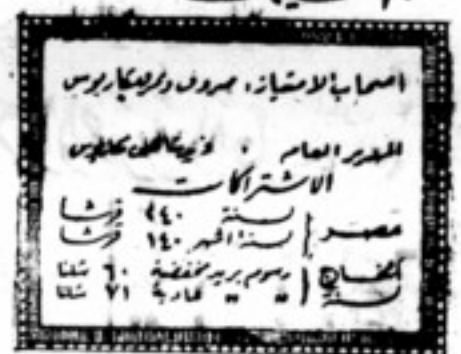 اصحاب الامتياز، صروف ونمر ومكاريوس
المدير العام .
الاشتراكات
مصر سنة ٢٤٠ قرشا
ستة اشهر ١٤٠ قرشا
الخارج رسوم بريد مخفضة ٦٠ شلنا
سنة " " عادية ٧١ شلنا